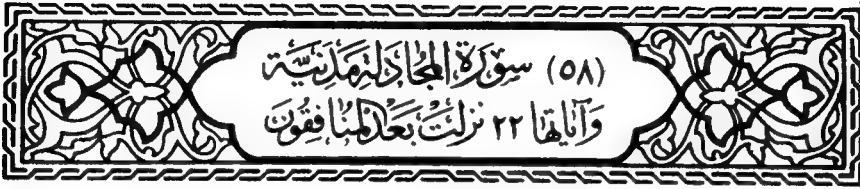 (٥٨) سورة المجادلة مدنية
وآياتها ٢٢ نزلت بعد المنافقون